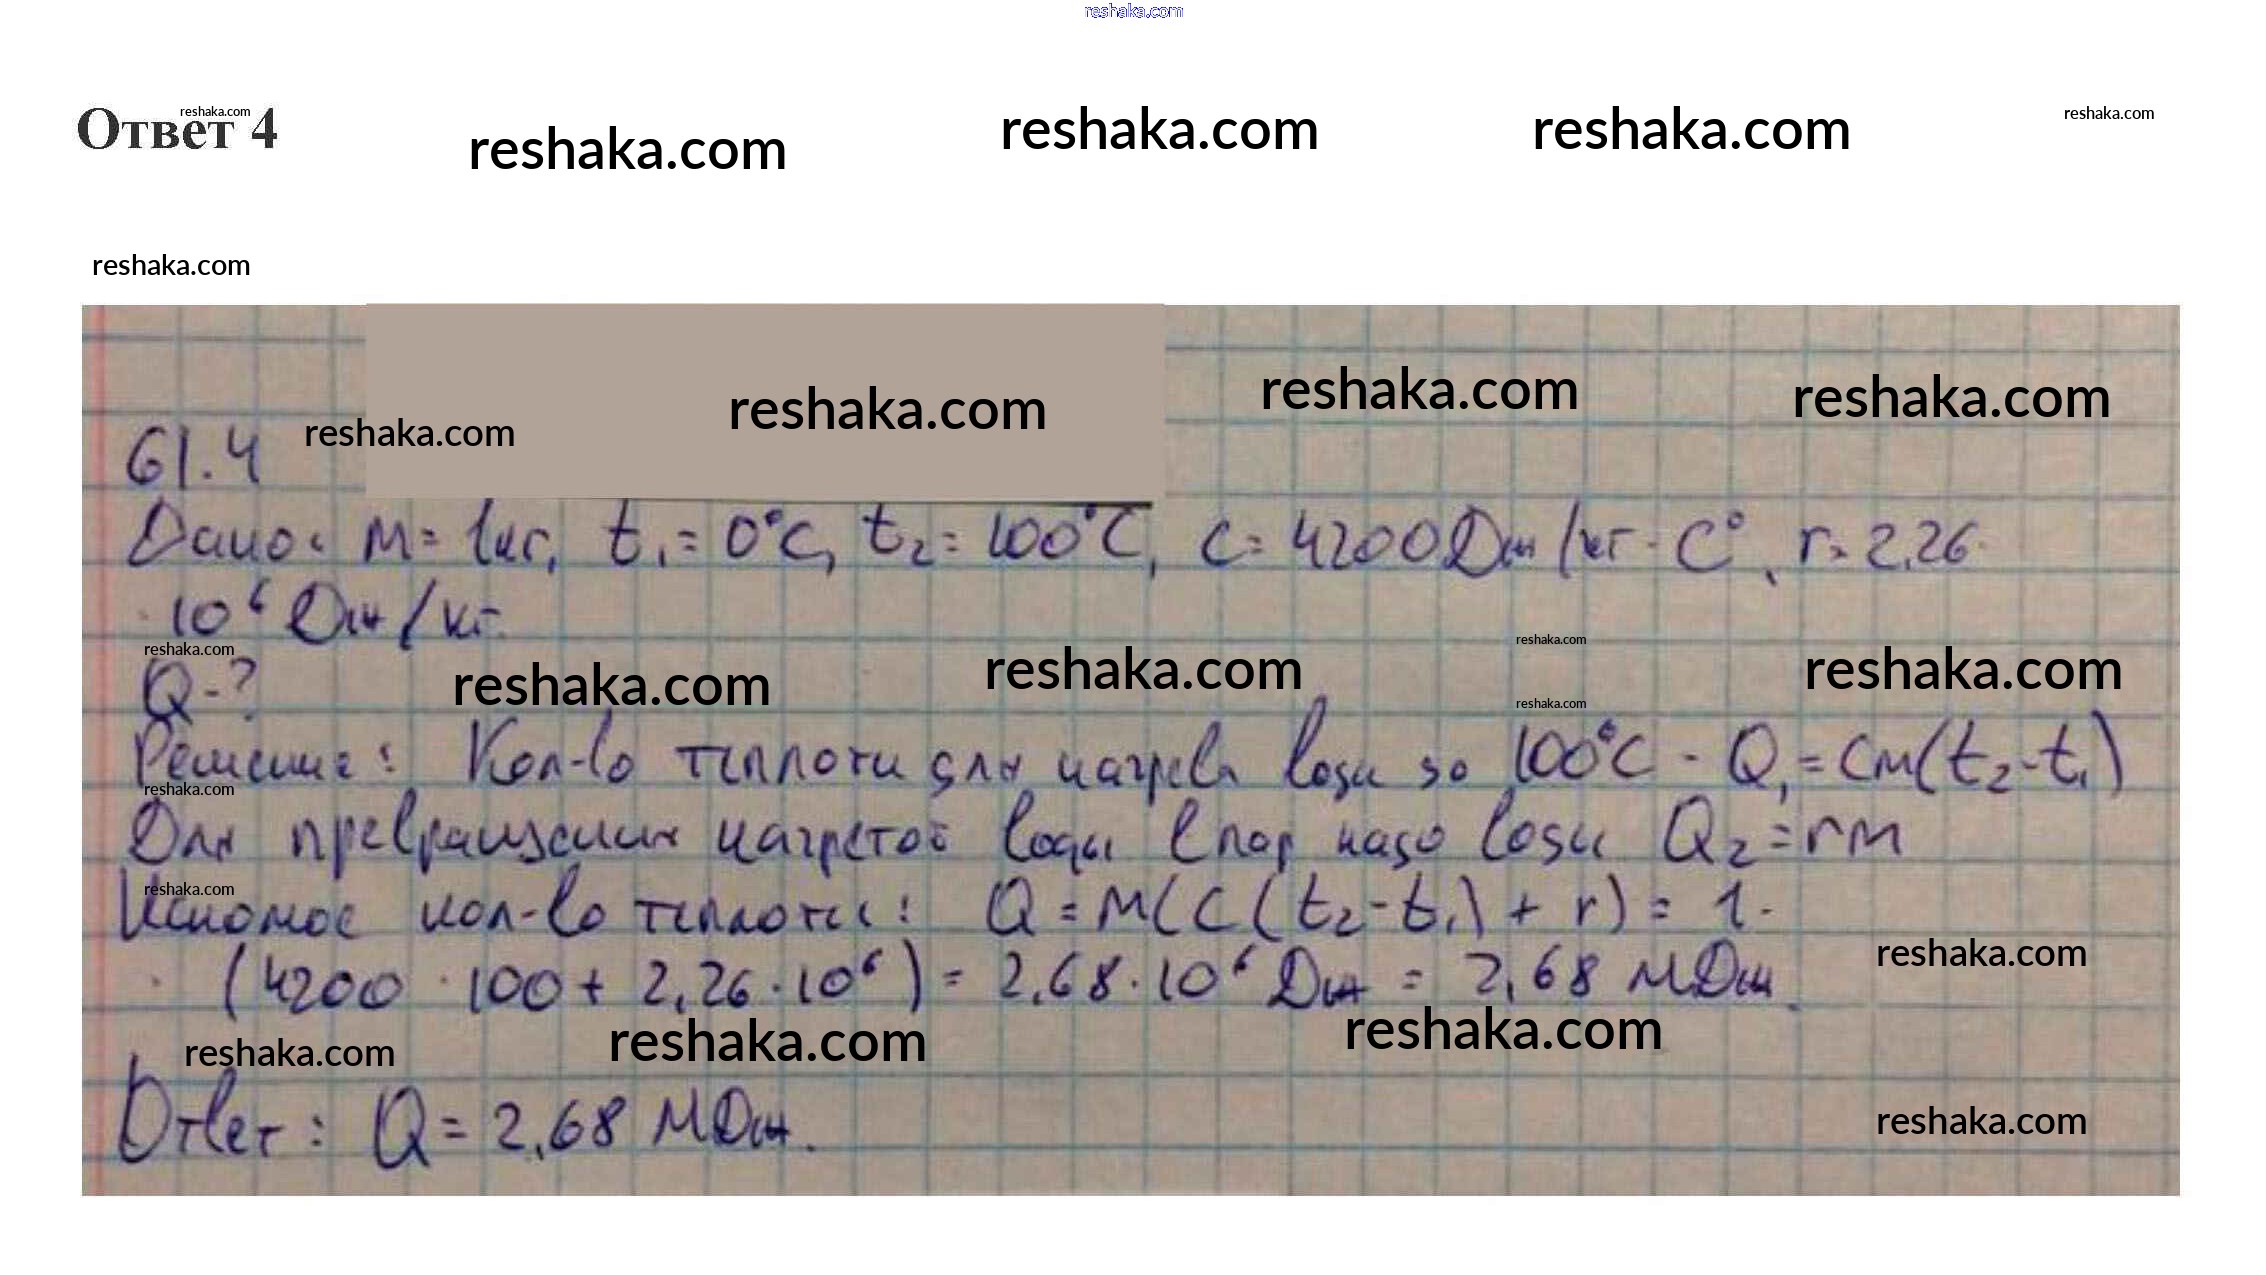 reshaka.com
Ответ 4
reshaka.com
reshaka.com reshaka.com reshaka.com reshaka.com
reshaka.com
reshaka.com reshaka.com reshaka.com reshaka.com
61.4
Дано: m = 1кг, t₁ = 0°C, t₂ = 100°C, c = 4200 Дж/кг · C°, r = 2,26 ·
· 10⁶ Дж/кг.
reshaka.com reshaka.com
Q - ?
reshaka.com reshaka.com reshaka.com
reshaka.com
Решение: Кол-во теплоты для нагрева воды до 100°C - Q₁ = cm(t₂-t₁)
reshaka.com
Для превращения нагретой воды в пар надо воды Q₂ = rm
reshaka.com
Искомое кол-во теплоты: Q = m(c(t₂-t₁) + r) = 1 ·
reshaka.com
· (4200 · 100 + 2,26 · 10⁶) = 2,68 · 10⁶ Дж = 2,68 МДж.
reshaka.com reshaka.com reshaka.com
Ответ: Q = 2,68 МДж.
reshaka.com